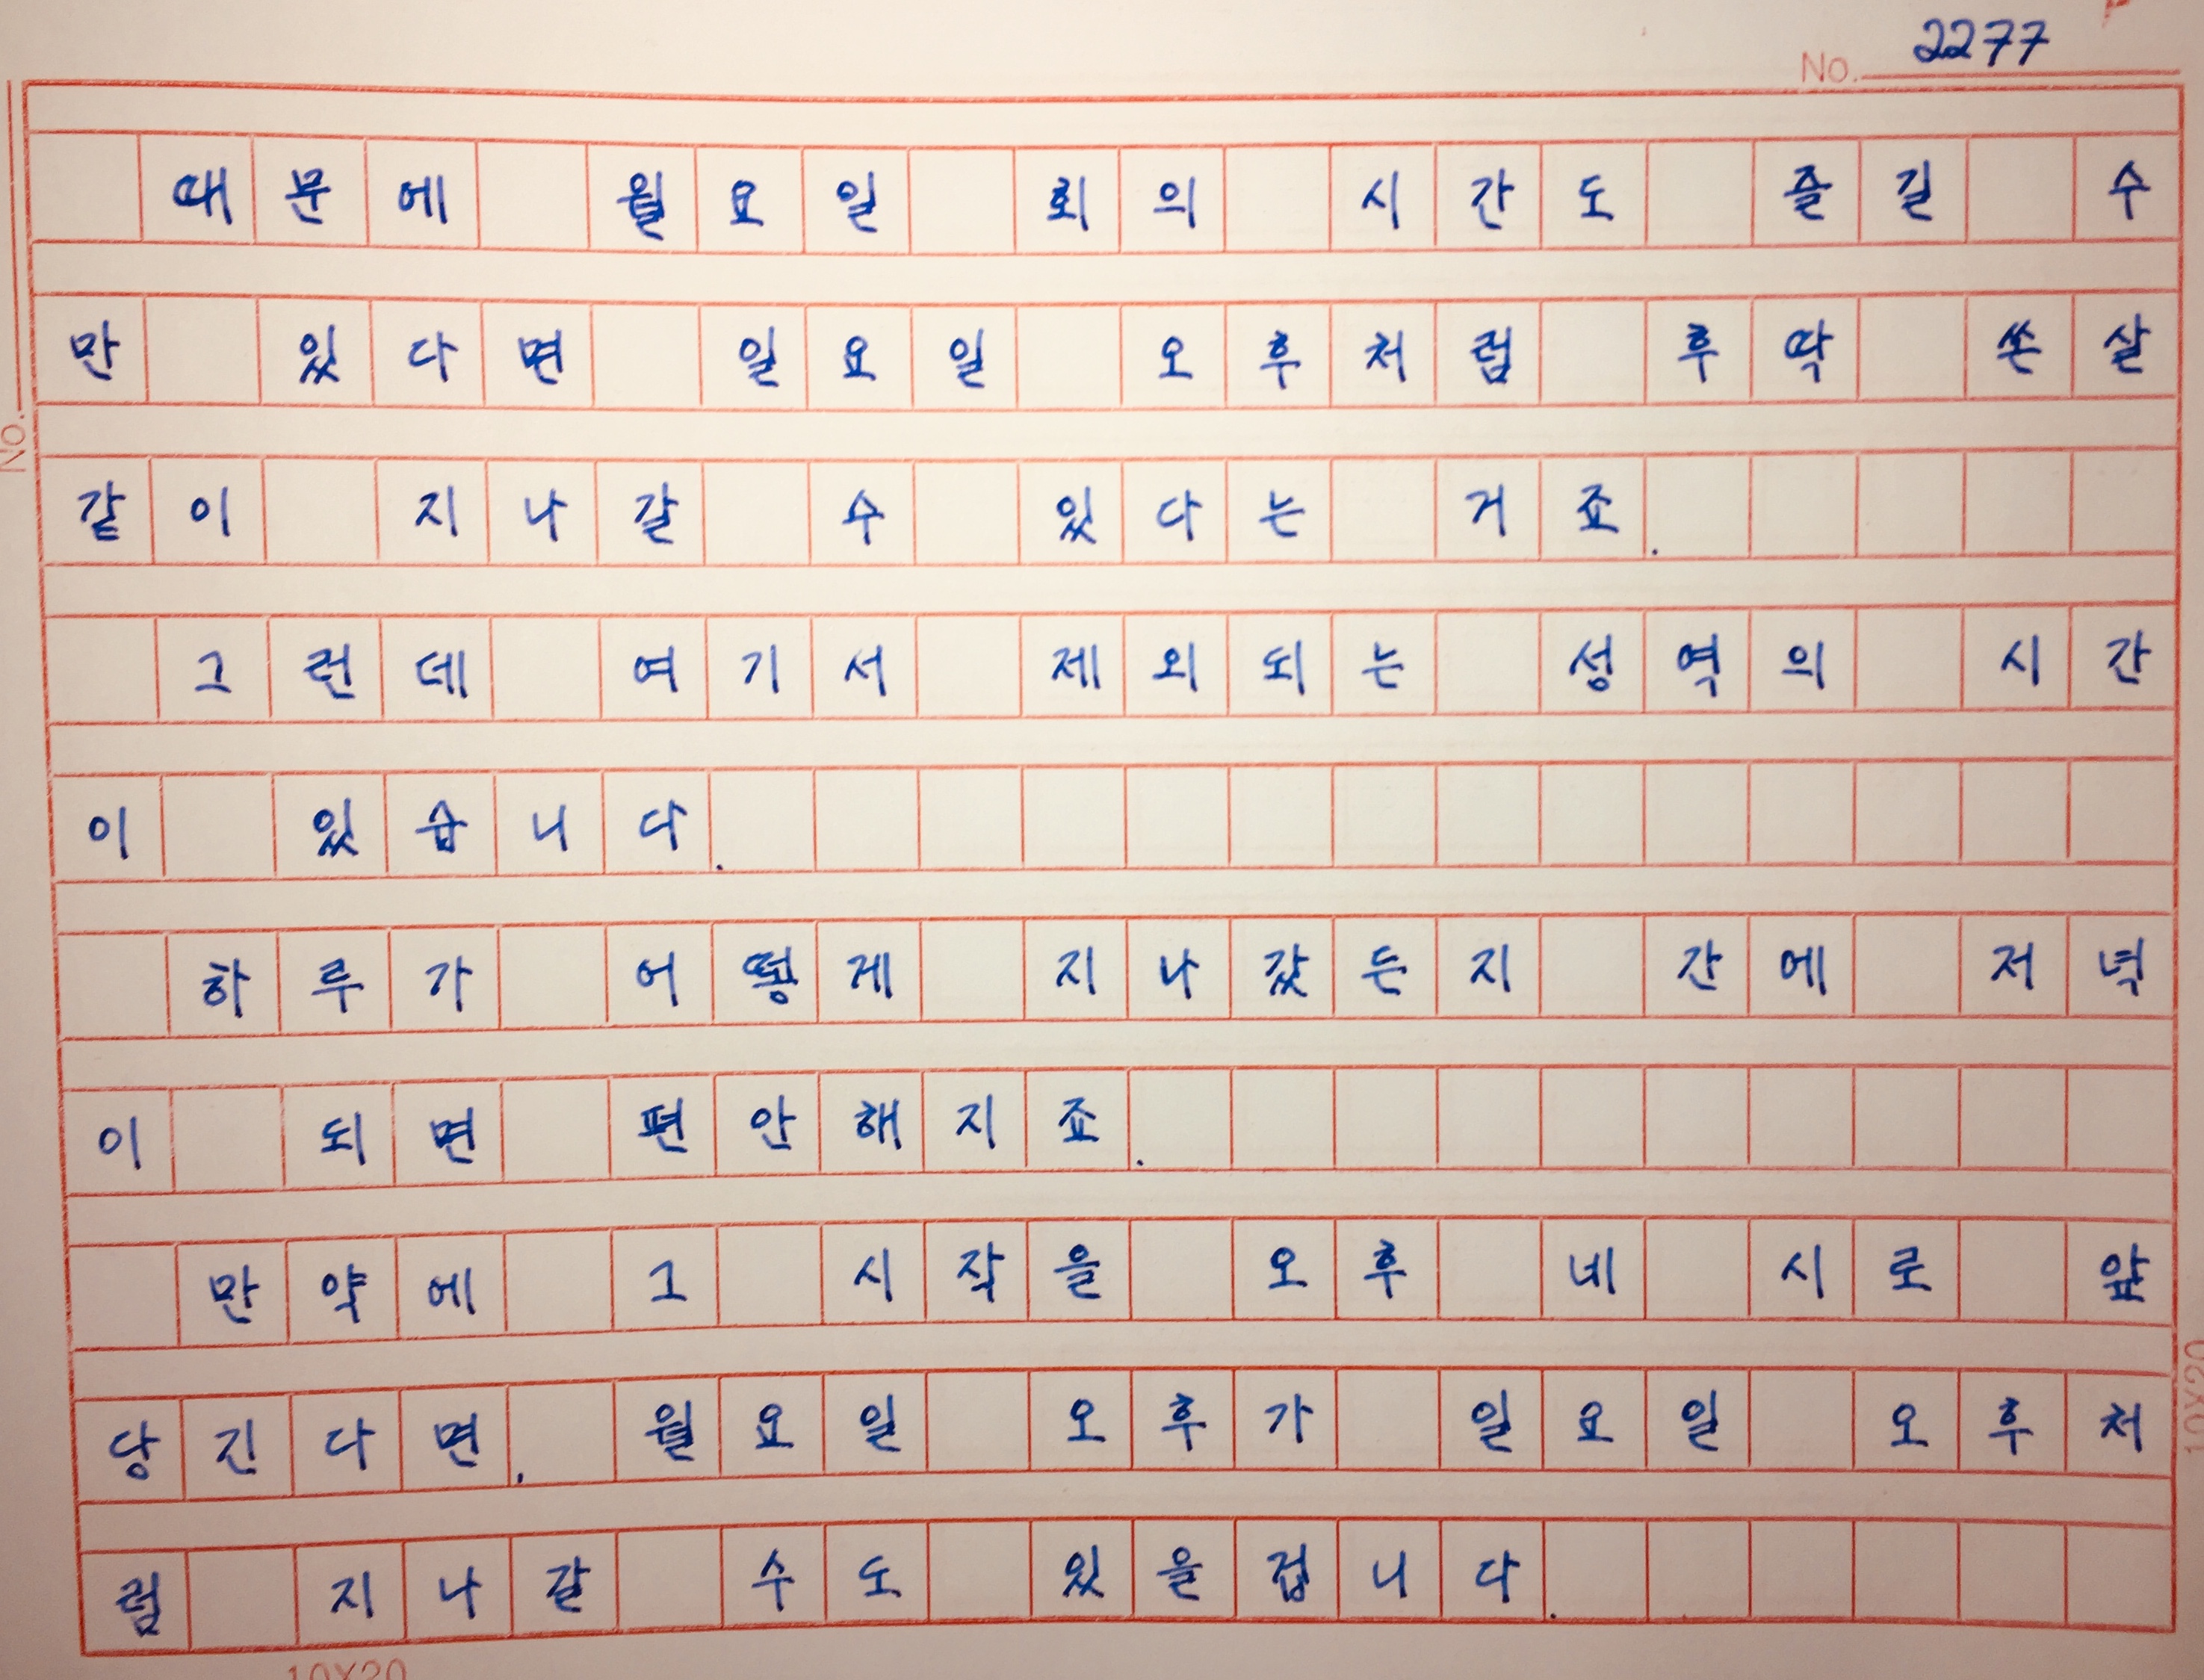 No. 2277
때문에 월요일 회의 시간도 즐길 수
만 있다면 일요일 오후처럼 후딱 쏜살
같이 지나갈 수 있다는 거죠.
그런데 여기서 제외되는 성역의 시간
이 있습니다.
하루가 어떻게 지나갔든지 간에 저녁
이 되면 편안해지죠.
만약에 그 시작을 오후 네 시로 앞
당긴다면, 월요일 오후가 일요일 오후처
럼 지나갈 수도 있을겁니다.
No.
10X20
10X20